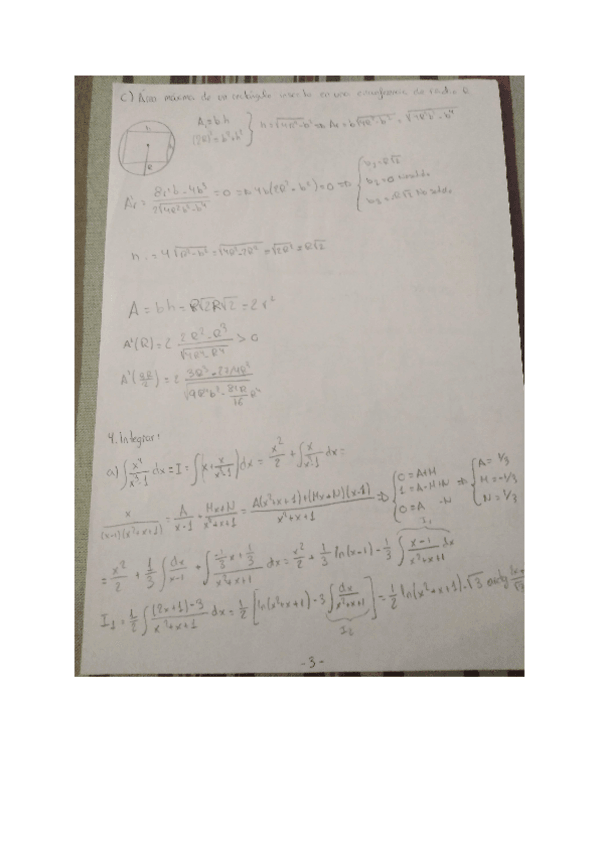 C) Área máxima de un rectángulo inscrito en una circunferencia de radio R
A₁=b·h
(2R)²=b²+h² } h=√(4R²-b²) ⇒ Ar=b√(4R²-b²)=√(4R²b²-b⁴)
h
R
A'r = (8R²b-4b³)/(2√(4R²b²-b⁴)) =0 ⇒ 4b(2R²-b²)=0 ⇒ { b₁=R√2
b₂=0 no válida
b₃=-R√2 no válida
=√(4R²-2R²)=√(2R²)=R√2
A=bh=R√2R√2=2r²
>0
4. Integrar:
a) ∫ x⁴/(x³-1) dx = I = ∫(x + x/(x³-1))dx = x²/2 + ∫ x/(x³-1) dx =
x/((x-1)(x²+x+1)) = A/(x-1) + (Mx+N)/(x²+x+1) = (A(x²+x+1)+(Mx+N)(x-1))/(x²+x+1) ⇒ { 0=A+M
1=A-M+N
0=A -N ⇒ { A=1/3
M=-1/3
N=1/3
= x²/2 + 1/3 ∫ dx/(x-1) + ∫ (-1/3 x + 1/3)/(x²+x+1) dx = x²/2 + 1/3 ln(x-1) - 1/3 ∫ (x-1)/(x²+x+1) dx
I₁
I₁ = 1/2 ∫ ((2x+1)-3)/(x²+x+1) dx = 1/2 [ln(x²+x+1) - 3 ∫ dx/(x²+x+1)] = 1/2 ln(x²+x+1) - √3 arctg
I₂
-3-